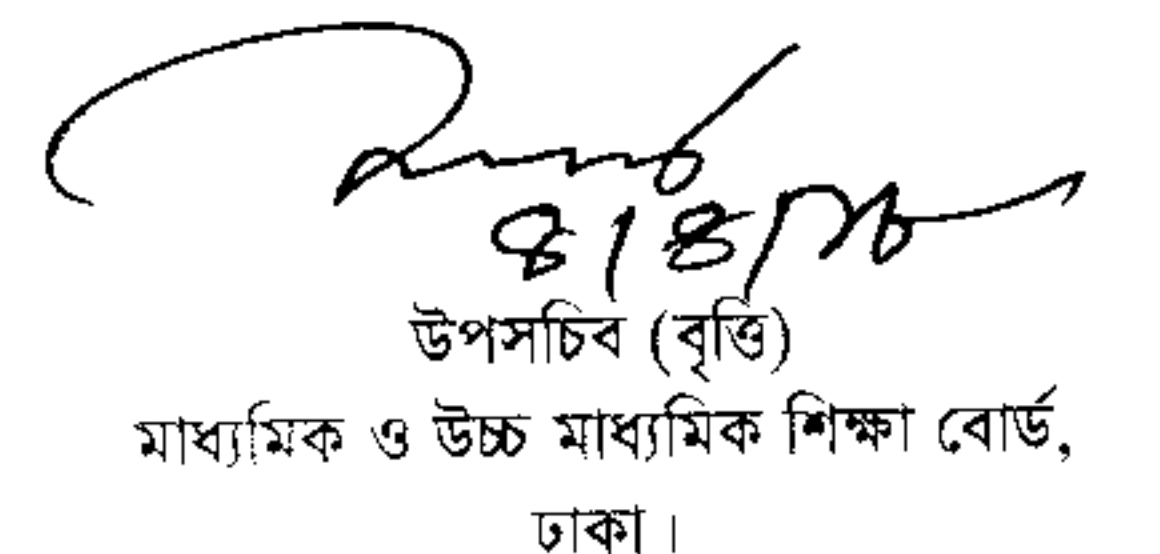 ৪/৪/
উপসচিব (বৃত্তি)
মাধ্যমিক ও উচ্চ মাধ্যমিক শিক্ষা বোর্ড,
ঢাকা।